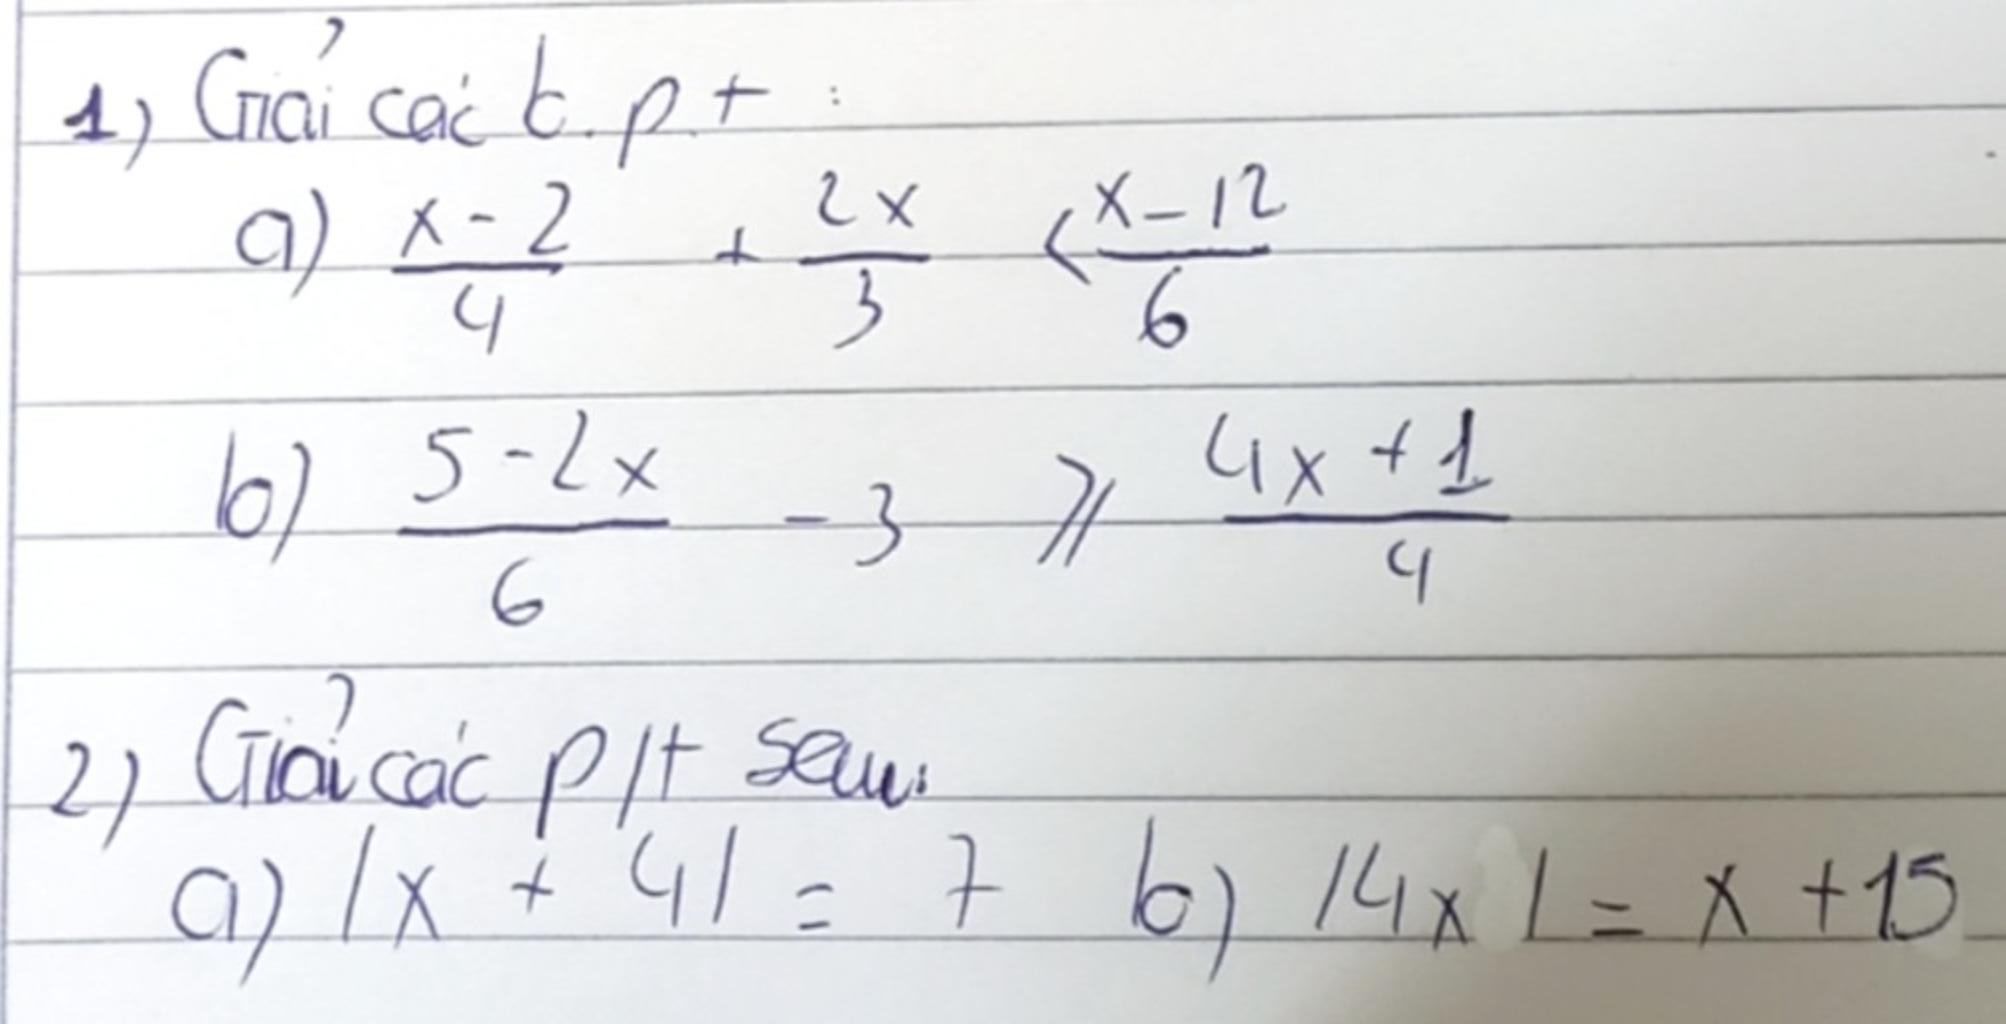 1) Giải các b.p.t :
a) x-2/4 + 2x/3 < x-12/6
b) 5-2x/6 - 3 ⩾ 4x+1/4
2) Giải các p/t sau:
a) |x + 4| = 7 b) |4x| = x +15